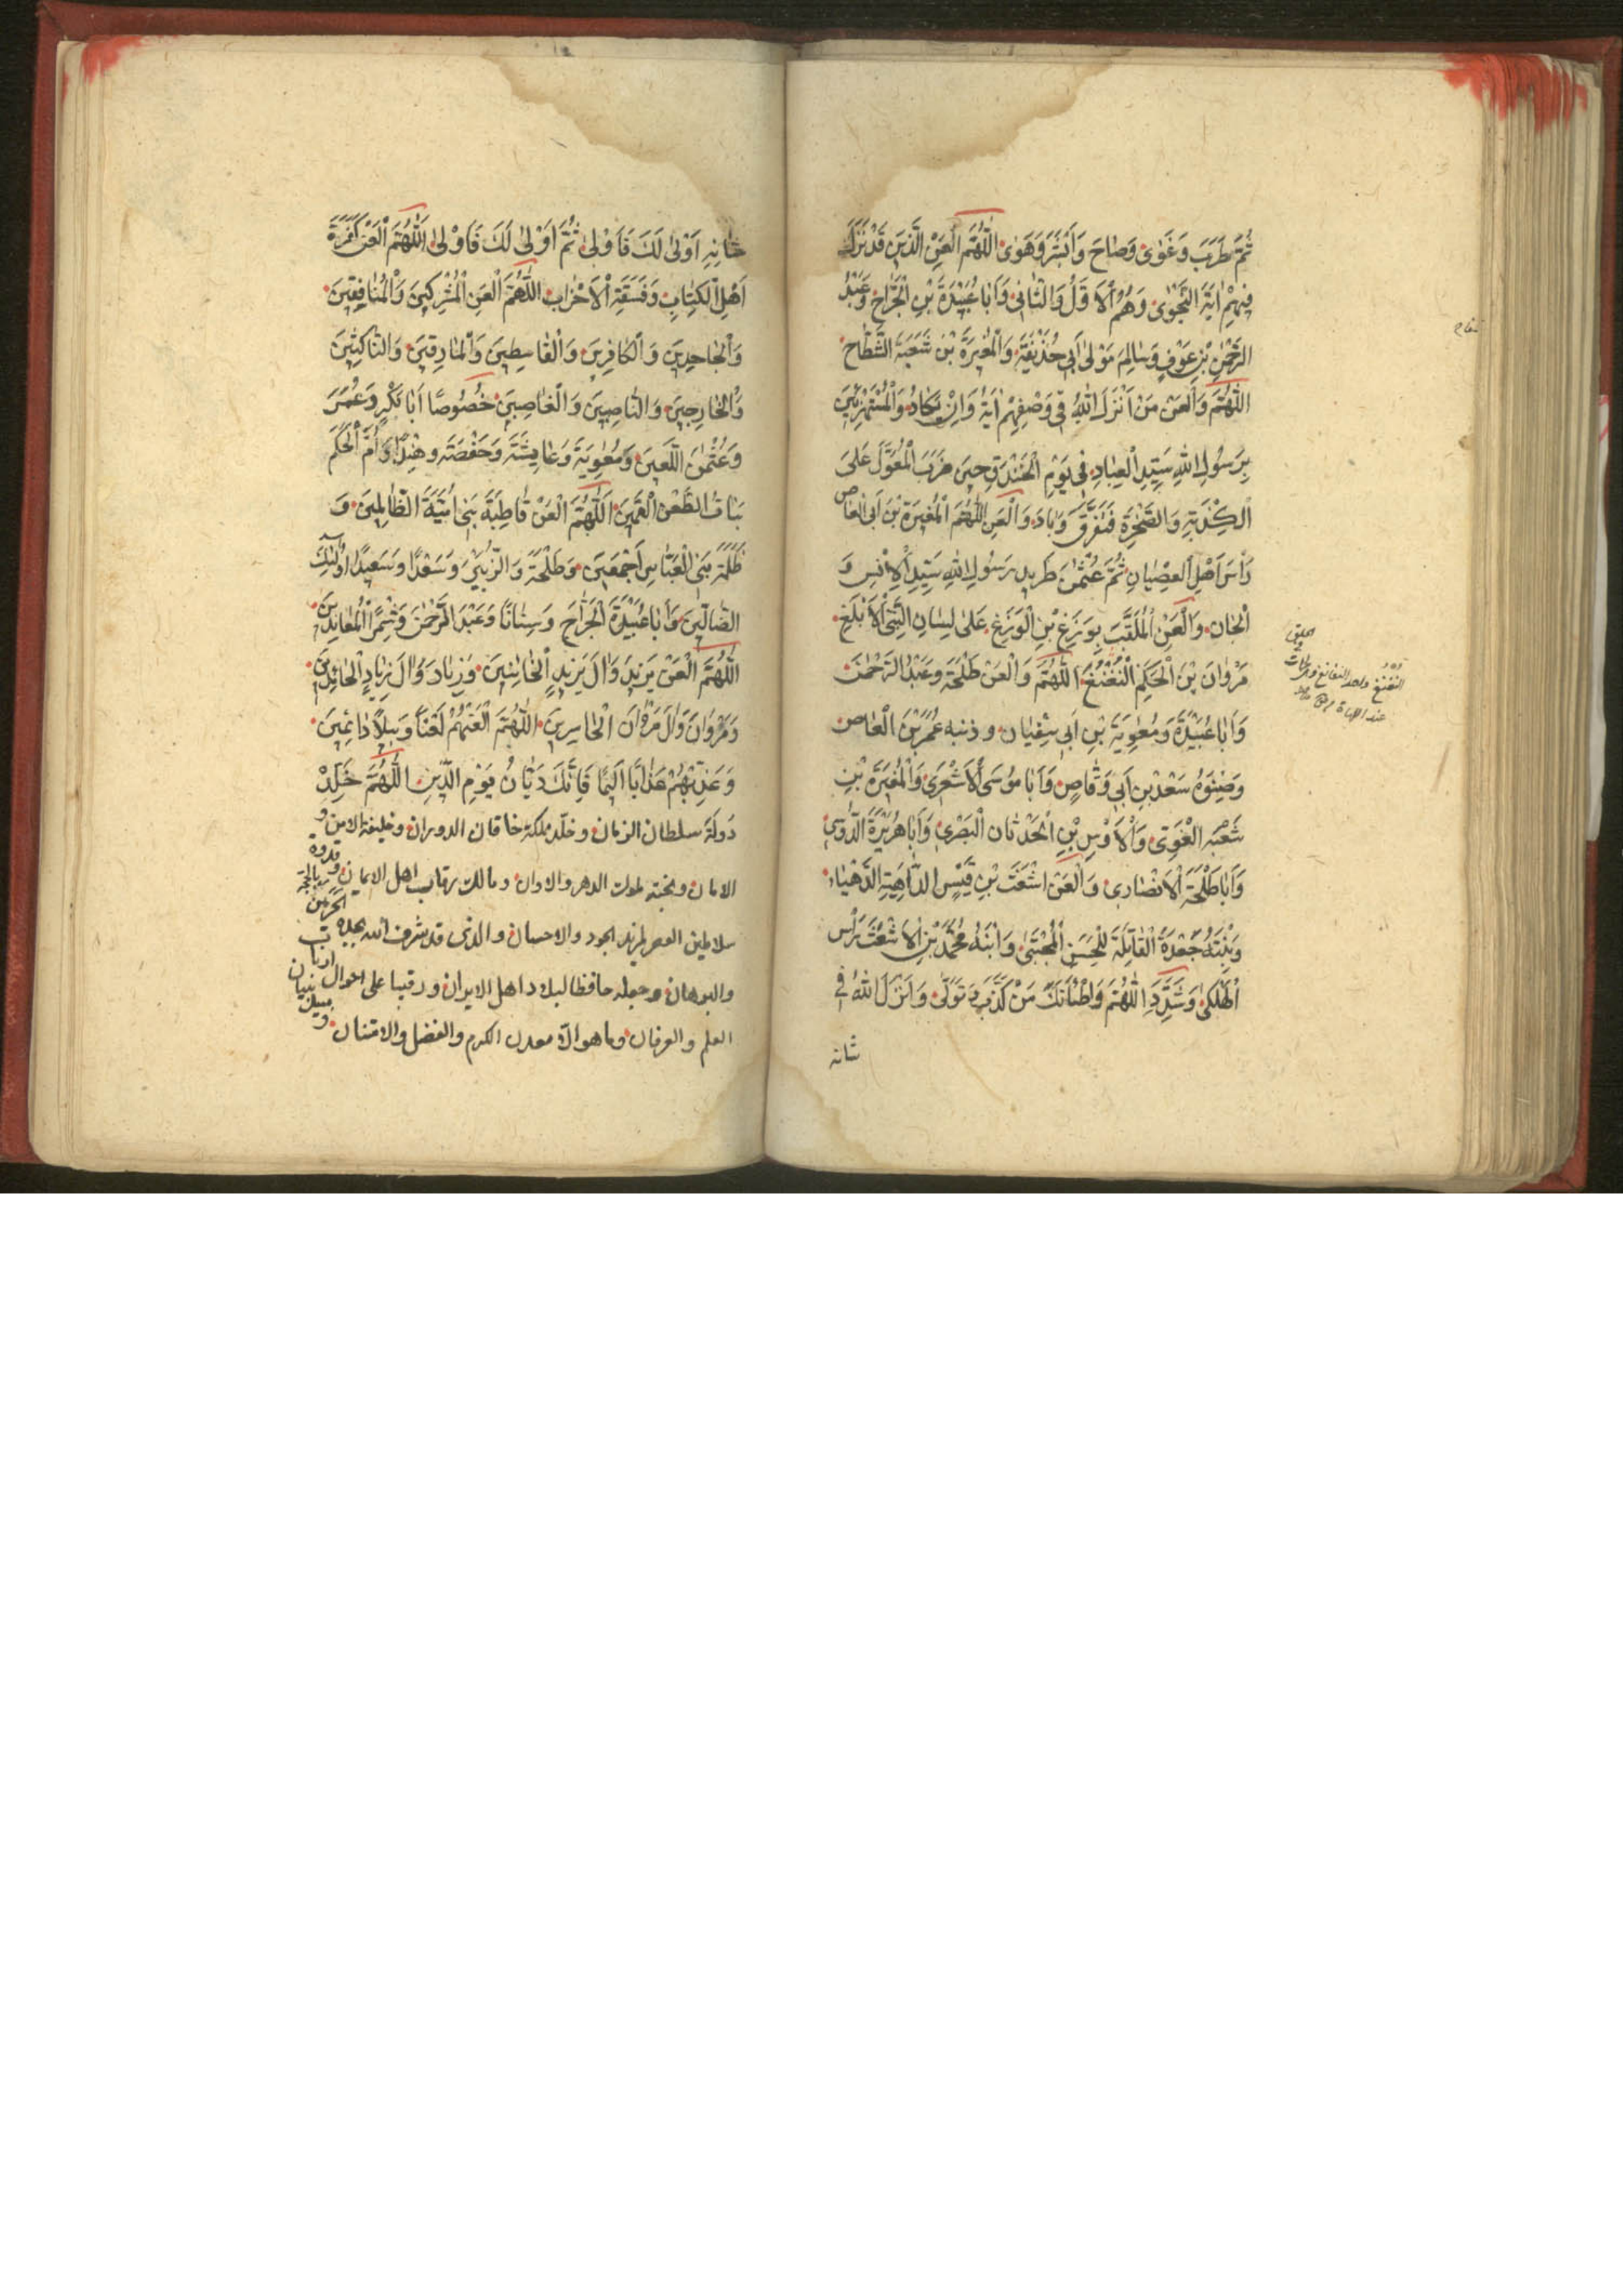 ثُمَّ طَرَبَ وَغَوٰى وَصٰاحَ وَاَبْشَرَ وَهَوٰى اَللّٰهُمَّ الْعَنِ الَّذِينَ قَدْ نَزَلَ
فِيهِمْ اٰيَةُ النَّجْوٰى وَهُمُ الْاَوَّلُ وَالثّٰانِى وَاَبٰا عُبَيْدَةَ بْنِ الْجَرّٰاحِ وَعَبْدُ
الرَّحْمٰنِ بْنِ عَوْفٍ وَسٰالِمَ مَوْلىٰ اَبِى حُذَيْفَةَ وَالْمُغِيرَةَ بْنَ شَعْبَةَ الشَّطّٰاحِ
اَللّٰهُمَّ وَالْعَنْ مَنْ اَنْزَلَ اللّٰهُ فِى وَصْفِهِمْ اٰيَةُ وَاِنْ يَكٰادُ وَالْمُسْتَهْزِئِينَ
بِرَسُولِ اللّٰهِ سَيِّدِ الْعِبٰادِ فِى يَوْمِ الْخَنْدَقِ حِينَ ضَرَبَ الْمُعَوَّلَ عَلىَ
الْكِذْيَةِ وَالصَّخْرَةِ فَتَفَرَّقَ وَبٰادَ وَالْعَنِ اللّٰهُمَّ الْمُغِيرَةَ بْنَ اَبِى الْعٰاصِ
رَأْسَ اَهْلِ الْعِصْيٰانِ ثُمَّ عُثْمٰنَ طَرِيدِ رَسُولِ اللّٰهِ سَيِّدِ الْاِنْسِ وَ
الْجٰانِ وَالْعَنِ الْمُلَقَّبَ بِوَزَغِ بْنِ الْوَزَغِ عَلىٰ لِسٰانِ النَّبِىِّ الْاَبْلَغِ
مَرْوٰانَ بْنَ الْحَكَمِ النُّغْنُغَ اَللّٰهُمَّ وَالْعَنْ طَلْحَةَ وَعَبْدُ الرَّحْمٰنَ
وَاَبٰا عُبَيْدَةَ وَمُعٰوِيَةَ بْنِ اَبِى سُفْيٰانَ وذنبه عُمَرَ بْنَ الْعٰاصِ
وَصِنْوَهُ سَعْدَ بْنِ اَبِى وَقّٰاصٍ وَاَبٰا مُوسَى الْاَشْعَرِى وَالْمُغِيرَةَ بْنِ
شَعْبَة الْغَوِىّ وَالْاَوْسِ بْنِ الْحَدْثٰان الْبَصْرِى وَاَبٰا هُرَيْرَةَ الدَّوْسِى
وَاَبٰا طَلْحَةَ الْاَنْصٰارِى وَالْعَنْ اَشْعَثَ بْنِ قَيْسٍ الدّٰاهِيَةِ الدَّهْيٰاءِ
وَبِنْتَهُ جَعْدَةَ الْقٰاتِلَةَ لِلْحَسَنِ الْمُجْتَبىٰ وَابْنَهُ مُحَمَّدَ بْنِ الْاَشْعَثَ رَأْس
الْهَلْكىٰ وَشَدِّدِ اللّٰهُمَّ وَطْئَاتَكَ مَنْ كَذَّبَ وَتَوَلّىٰ وَاَنْزَلَ اللّٰهُ فِى
شانه
النُّغْنُغ واحد النغانغ وهى
عند اللهاة
شٰانِهِ اَوْلىٰ لَكَ فَاَوْلىٰ ثُمَّ اَوْلىٰ لَكَ فَاَوْلىٰ اَللّٰهُمَّ الْعَنْ كَفَرَةَ
اَهْلِ الْكِتٰابِ وَفَسَقَةِ الْاَحْزٰابِ اَللّٰهُمَّ الْعَنِ الْمُشْرِكِينَ وَالْمُنٰافِقِينَ
وَالْجٰاحِدِينَ وَالْكٰافِرِينَ وَالْقٰاسِطِينَ وَالْمٰارِقِينَ وَالنّٰاكِثِينَ
وَالْخٰارِجِينَ وَالنّٰاصِبِينَ وَالْغٰاصِبِينَ خُصُوصًا اَبٰا بَكْرٍ وَعُمَرَ
وَعُثْمٰنَ اللَّعِينَ وَمُعٰوِيَةَ وَعٰايِشَةَ وَحَفْصَةَ وهِنْدًا وَاُمَّ الْحَكَمِ
اَللّٰهُمَّ الْعَنْ قٰاطِبَةً بَنِى اُمَيَّةَ الظّٰالِمِينَ وَ
ظَلَمَةَ بَنِى الْعَبّٰاسِ اَجْمَعِينَ وَطَلْحَةَ وَالزُّبَيْرَ وَسَعْدًا وَسَعِيدًا اُولٰئِكَ
الضّٰالِّينَ وَاَبٰا عُبَيْدَةَ الْجَرّٰاحَ وَسِنٰانًا وَعَبْدَ الرَّحْمٰنَ وَشِمْرًا الْمُعٰانِدِينَ
اَللّٰهُمَّ الْعَنْ يَزِيدَ وَاٰلَ يَزِيدٍ الْخٰائِنِينَ وَزِيٰادَ وَاٰلَ زِيٰادٍ الْحٰائِدِينَ
وَمَرْوٰانَ وَاٰلَ مَرْوٰان الْخٰاسِرِينَ اَللّٰهُمَّ الْعَنْهُمْ لَعْنًا وَبِيلًا دٰائِمِينَ
وَعَذِّبْهُمْ عَذٰابًا اَلِيمًا فَاِنَّكَ دَيّٰانُ يَوْمِ الدِّينِ اَللّٰهُمَّ خَلِّدْ
دَولَةَ سلطان الزمان وخلّد ملكة خاقان الدوران وخليفة الامن و
الامان ونخبة ملوك الدهر والاوان ومالك رقاب اهل الايمان وقدوة
سلاطين العصر لمزيد الجود والاحسان والذى قد شرف الله
والبرهان وجعله حافظا لبلاد اهل الايران ورقيبا على احوال ارباب
العلم والعرفان وما هو الّا معدن الكرم والفضل والامتنان و